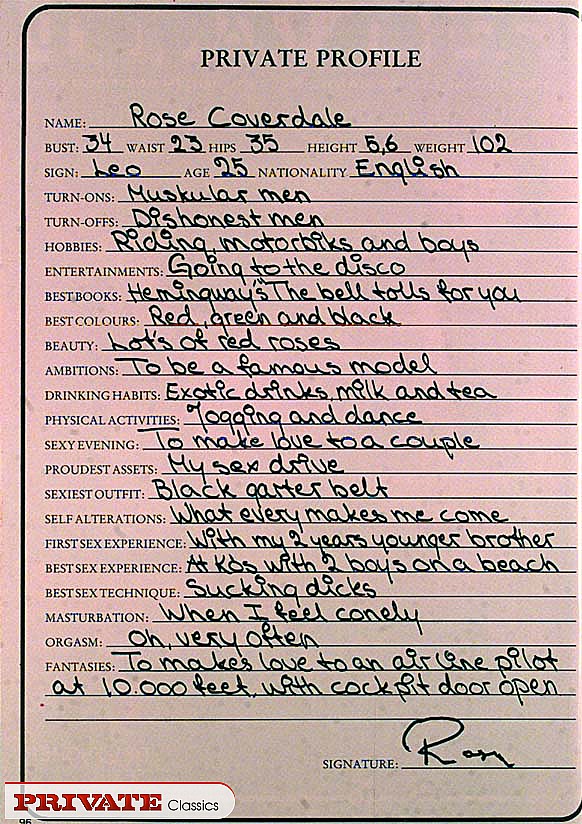 PRIVATE PROFILE
NAME: Rose Coverdale
BUST: 34 WAIST 23 HIPS 35 HEIGHT 5,6 WEIGHT 102
SIGN: Leo AGE 25 NATIONALITY English
TURN-ONS: Muskular men
TURN-OFFS: Dishonest men
HOBBIES: Riding, motorbiks and boys
ENTERTAINMENTS: Going to the disco
BEST BOOKS: Hemingway's "The bell tolls for you
BEST COLOURS: Red, green and black
BEAUTY: Lot's of red roses
AMBITIONS: To be a famous model
DRINKING HABITS: Exotic drinks, milk and tea
PHYSICAL ACTIVITIES: Jogging and dance
SEXY EVENING: To make love to a couple
PROUDEST ASSETS: My sex drive
SEXIEST OUTFIT: Black garter belt
SELF ALTERATIONS: What every makes me come
FIRST SEX EXPERIENCE: With my 2 years younger brother
BEST SEX EXPERIENCE: At Kos with 2 boys on a beach
BEST SEX TECHNIQUE: Sucking dicks
MASTURBATION: When I feel conely
ORGASM: Oh, very often
FANTASIES: To makes love to an air line pilot
at 10.000 feet, with cockpit door open
SIGNATURE: Rose
PRIVATE Classics